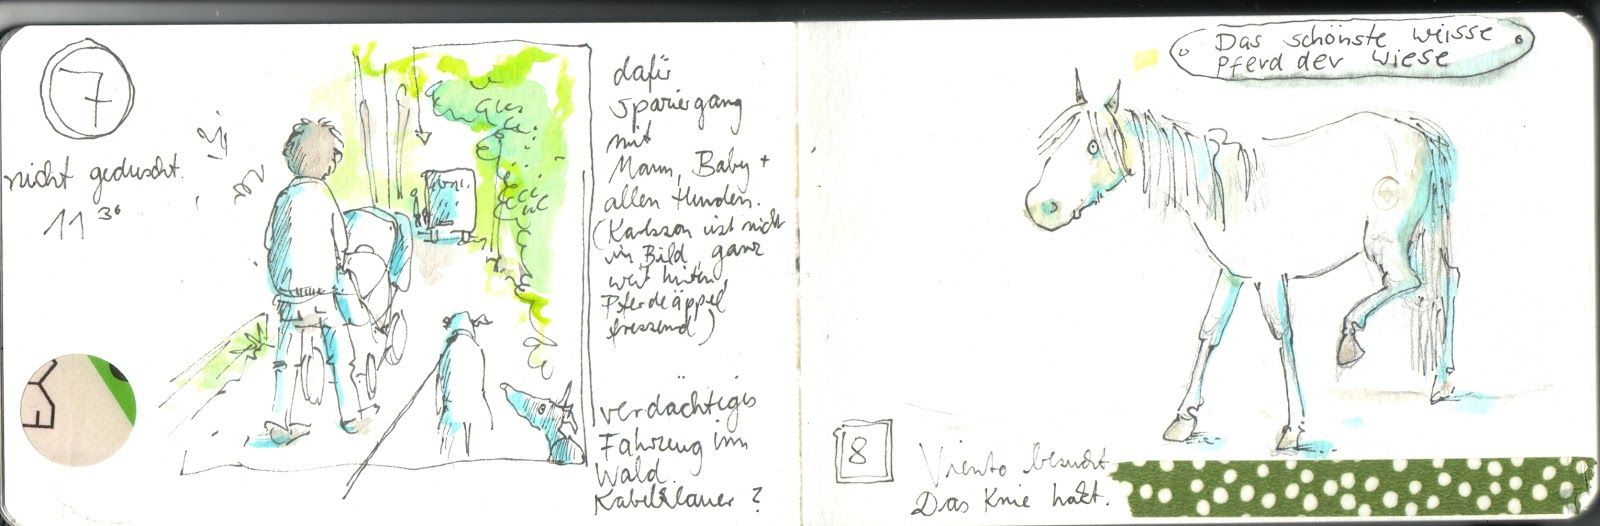 7
nicht geduscht.
11 30
dafür
spaziergang
mit
Mann, Baby +
allen Hunden.
(Karlsson ist nicht
im Bild, ganz
weit hinten,
Pferdeäppel
fressend)
verdächtiges
Fahrzeug im
Wald.
Kabelklauer?
Das schönste weisse
Pferd der Wiese
8
Viento besucht.
Das Knie hält.